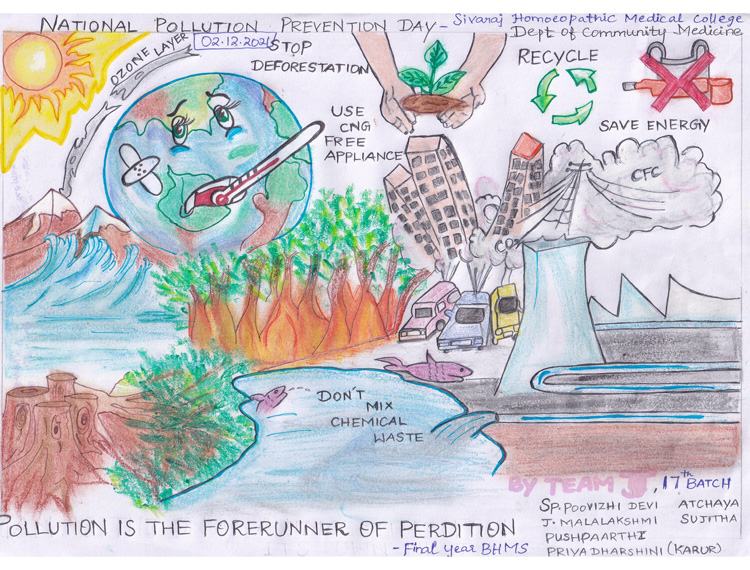 NATIONAL POLLUTION PREVENTION DAY - Sivaraj Homoeopathic Medical College
Dept of Community Medicine
02.12.2021
OZONE LAYER
STOP
DEFORESTATION
USE
CNG
FREE
APPLIANCE
RECYCLE
SAVE ENERGY
CFC
DON'T
MIX
CHEMICAL
WASTE
BY TEAM JJ, 17th BATCH
SP. POOVIZHI DEVI ATCHAYA
J. MALALAKSHMI SUJITHA
PUSHPAARTHI
PRIYADHARSHINI (KARUR)
POLLUTION IS THE FORERUNNER OF PERDITION
- Final year BHMS